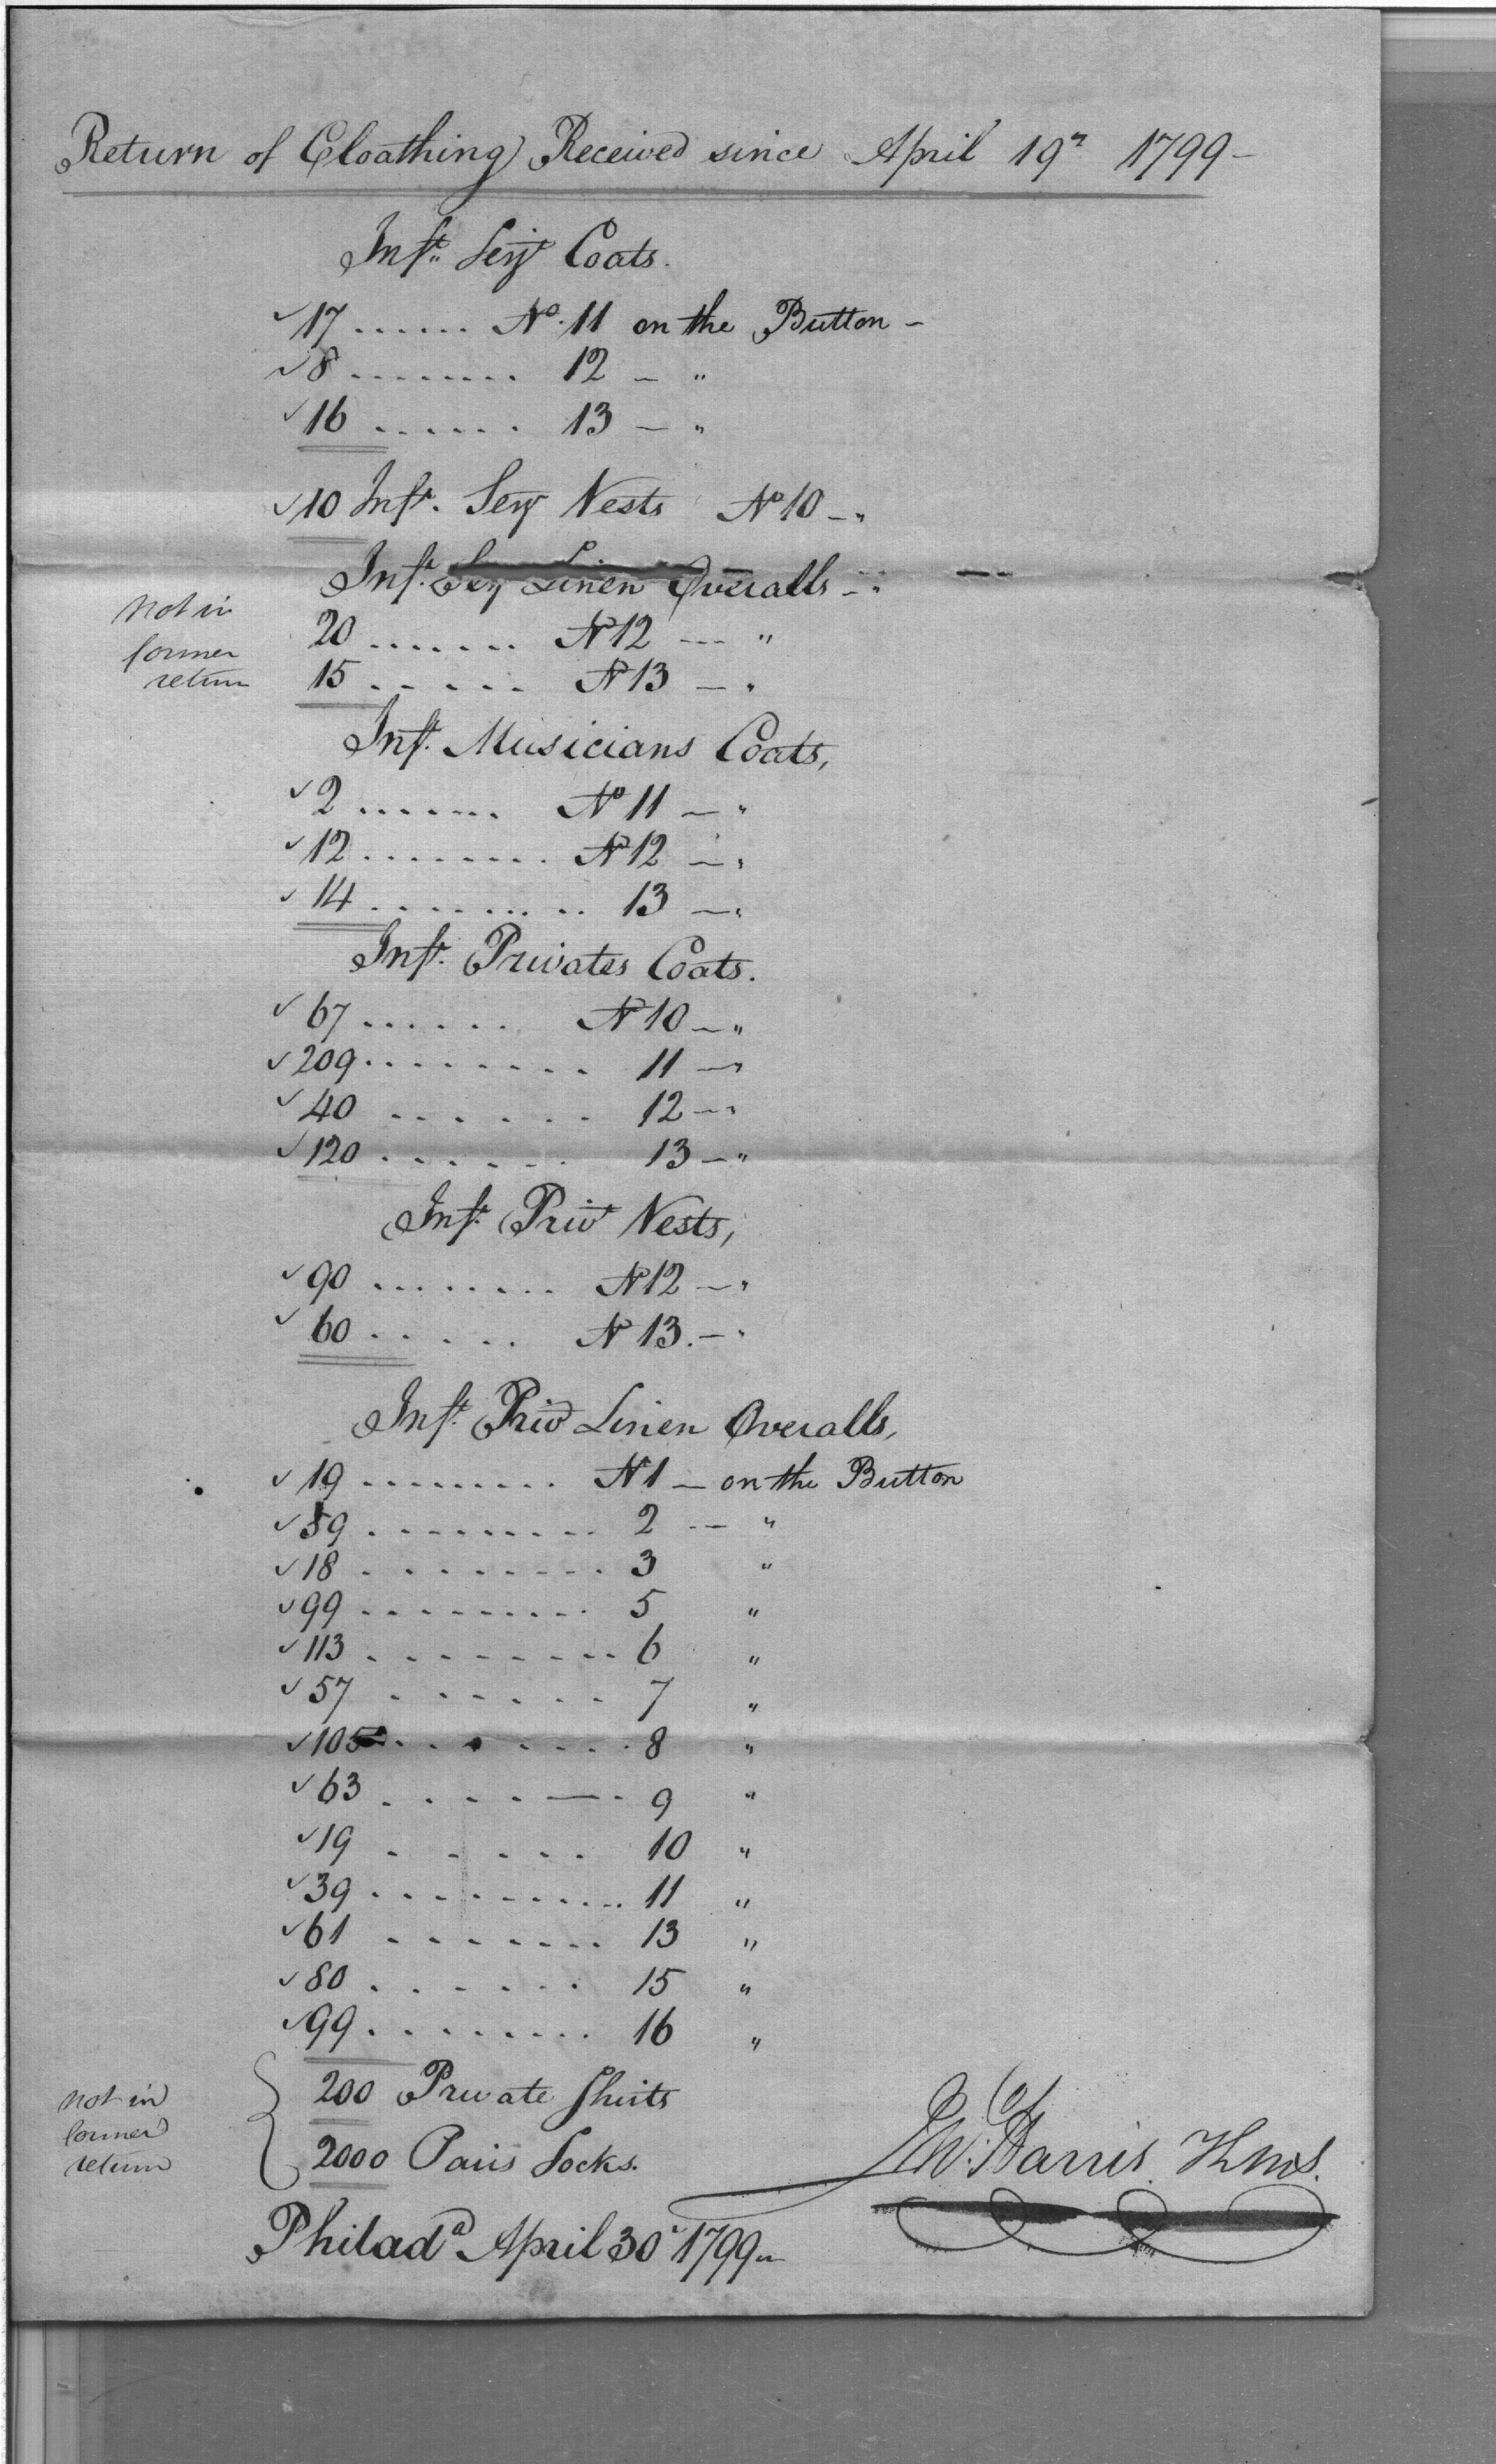 Return of Cloathing Received since April 19th 1799 –
Inft. Serjt Coats.
✓ 17 ...... No. 11 on the Button –
✓ 8 ........ 12 – "
✓ 16 ...... 13 – "
✓ 10 Inft. Serj Vests No 10 – "
Inft. Serj Linen Overalls – "
not in
former
return
20 ....... No 12 --- "
15 ...... No 13 – "
Inft. Musicians Coats,
✓ 2 ....... No 11 – "
✓ 12 ........ No 12 – "
✓ 14 ......... 13 – "
Inft. Privates Coats.
✓ 67 ...... No 10 – "
✓ 209 ........ 11 – "
✓ 40 ...... 12 – "
✓ 120 ...... 13 – "
Inft. Privt Vests,
✓ 90 ........ No 12 – "
✓ 60 ..... No 13. – "
Inft. Priv Linen Overalls,
✓ 19 ......... No 1 – on the Button
✓ 59 ......... 2 -- "
✓ 18 ......... 3 "
✓ 99 ......... 5 "
✓ 113 ......... 6 "
✓ 57 ....... 7 "
✓ 105 ........ 8 "
✓ 63 ....—. 9 "
✓ 19 ...... 10 "
✓ 39 ......... 11 "
✓ 61 ........ 13 "
✓ 80 ...... 15 "
✓ 99 ........ 16 "
not in
former
return
200 Private Shirts
2000 Pairs Socks.
Jn. Harris KMS.
Philada April 30th 1799 –